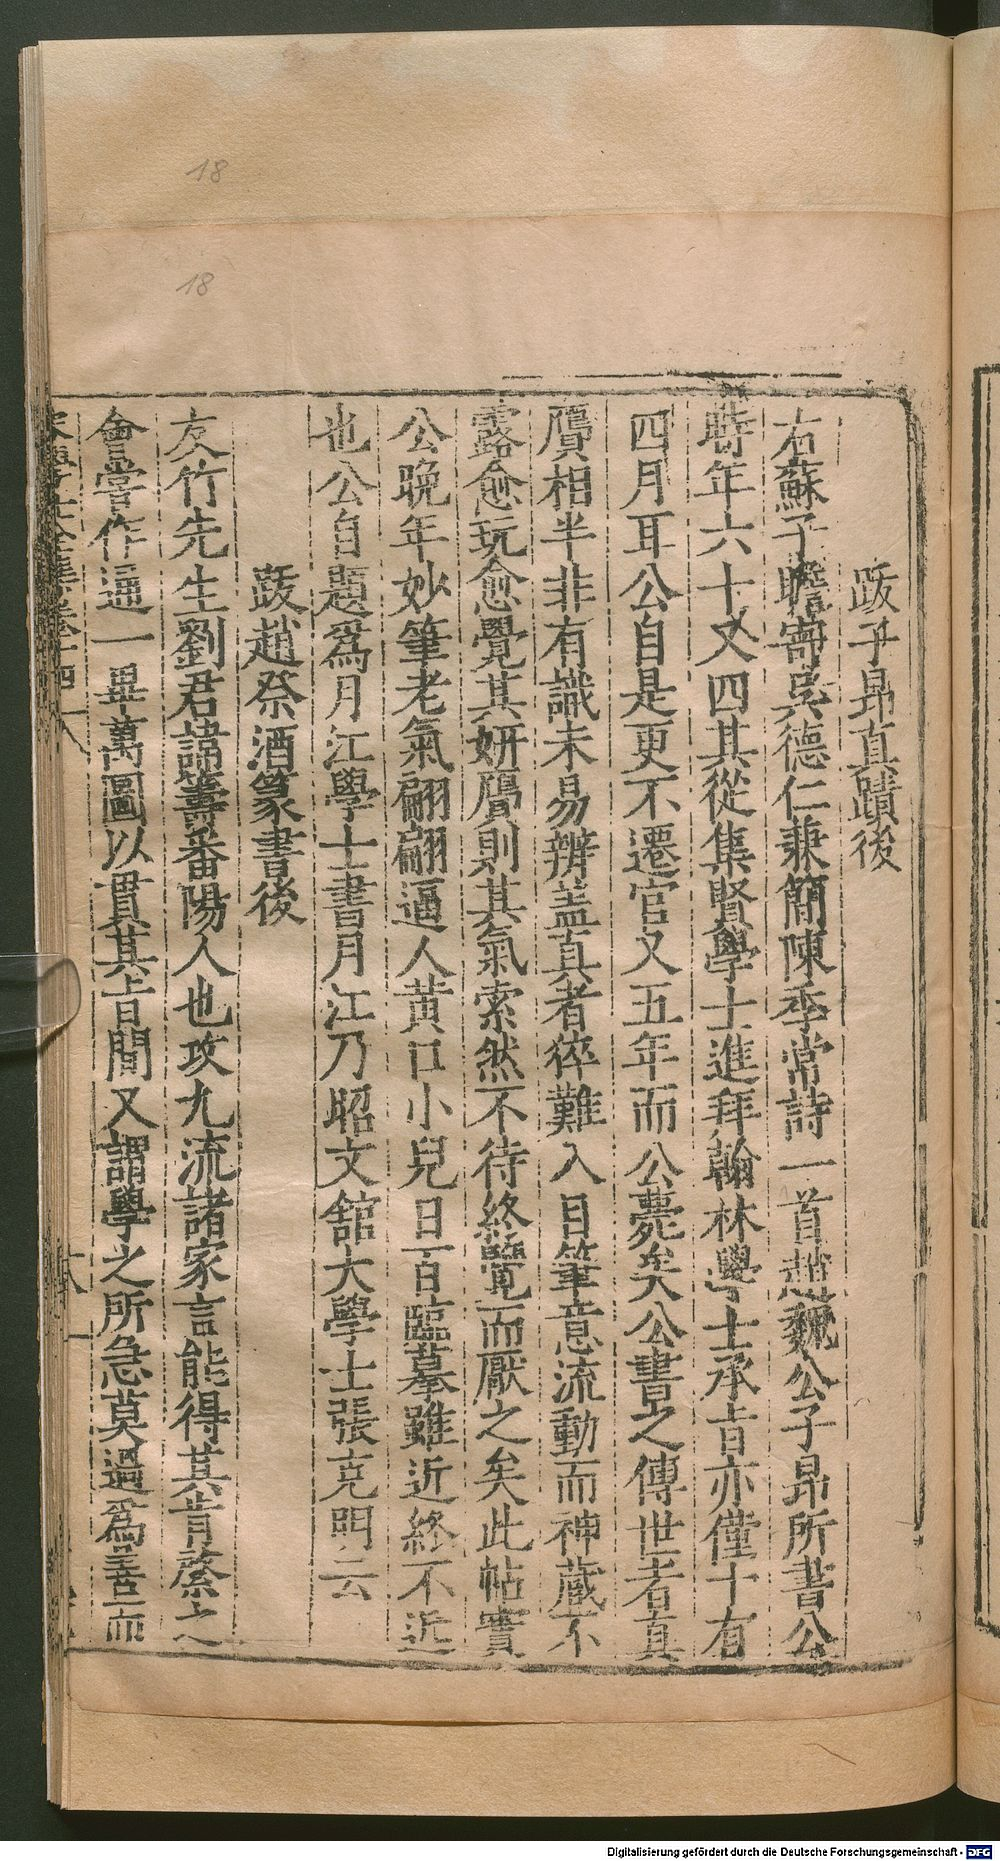 18
18
跋子昂真蹟後
右蘇子瞻寄吳德仁兼簡陳季常詩一首趙魏公子昂所書公
時年六十又四其從集賢學士進拜翰林學士承旨亦僅十有
四月耳公自是更不遷官又五年而公薨矣公書之傳世者真
贗相半非有識未易辨盖真者猝難入目筆意流動而神藏不
露愈玩愈覺其妍贗則其氣索然不待終覽而厭之矣此帖實
公晚年妙筆老氣翩翩逼人黃口小兒日百臨摹雖近終不近
也公自題爲月江學士書月江乃昭文舘大學士張克明云
跋趙祭酒篆書後
友竹先生劉君諱籌番陽人也攻九流諸家言能得其肯綮之
會嘗作通一畢萬圖以貫其旨間又謂學之所急莫過爲善而
Digitalisierung gefördert durch die Deutsche Forschungsgemeinschaft - DFG